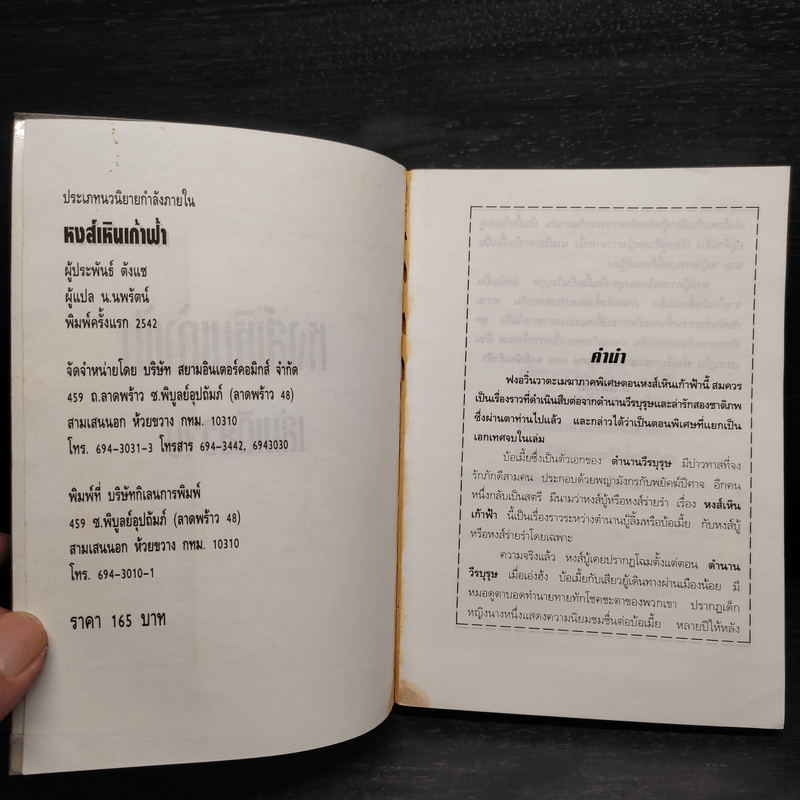 ประเภทนวนิยายกำลังภายใน
หงส์เหินเก้าฟ้า
ผู้ประพันธ์ ตังแช
ผู้แปล น.นพรัตน์
พิมพ์ครั้งแรก 2542
จัดจำหน่ายโดย บริษัท สยามอินเตอร์คอมิกส์ จำกัด
459 ถ.ลาดพร้าว ซ.พิบูลย์อุปถัมภ์ (ลาดพร้าว 48)
สามเสนนอก ห้วยขวาง กทม. 10310
โทร. 694-3031-3 โทรสาร 694-3442, 6943030
พิมพ์ที่ บริษัทกิเลนการพิมพ์
459 ซ.พิบูลย์อุปถัมภ์ (ลาดพร้าว 48)
สามเสนนอก ห้วยขวาง กทม. 10310
โทร. 694-3010-1
ราคา 165 บาท
คำนำ
ฟงอวิ๋นวาตะเมฆาภาคพิเศษตอนหงส์เหินเก้าฟ้านี้ สมควร
เป็นเรื่องราวที่ดำเนินสืบต่อจากตำนานวีรบุรุษและล่ารักสองชาติภพ
ซึ่งผ่านตาท่านไปแล้ว และกล่าวได้ว่าเป็นตอนพิเศษที่แยกเป็น
เอกเทศจบในเล่ม
บ้อเมี้ยซึ่งเป็นตัวเอกของ ตำนานวีรบุรุษ มีบ่าวทาสที่จง
รักภักดีสามคน ประกอบด้วยพญามังกรกับพยัคฆ์ปีศาจ อีกคน
หนึ่งกลับเป็นสตรี มีนามว่าหงส์บู๊หรือหงส์ร่ายรำ เรื่อง หงส์เหิน
เก้าฟ้า นี้เป็นเรื่องราวระหว่างตำนานบู๊ลิ้มหรือบ้อเมี้ย กับหงส์บู๊
หรือหงส์ร่ายรำโดยเฉพาะ
ความจริงแล้ว หงส์บู๊เคยปรากฏโฉมตั้งแต่ตอน ตำนาน
วีรบุรุษ เมื่อเอ่งฮ้ง บ้อเมี้ยกับเสียวยู้เดินทางผ่านเมืองน้อย มี
หมอดูตาบอดทำนายทายทักโชคชะตาของพวกเขา ปรากฏเด็ก
หญิงนางหนึ่งแสดงความนิยมชมชื่นต่อบ้อเมี้ย หลายปีให้หลัง